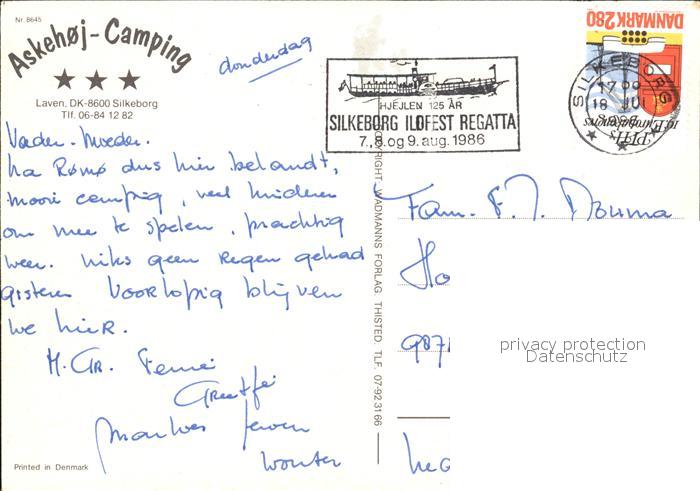 Nr. 8645
Askehøj-Camping
Laven, DK-8600 Silkeborg
Tlf. 06-84 12 82
donderdag
Vader. Moeder.
Na Rømø dus hier belandt,
mooie campig, veel kinderen
om mee te spelen, prachtig
weer. niks geen regen gehad
gisteren Voorlopig blijven
we hier.
H. Gr. Femie
Greetje
Marloes Jeroen
Wouter
Printed in Denmark
COPYRIGHT WADMANNS FORLAG THISTED. TLF. 07-92 31 66
HJEJLEN 125 ÅR
SILKEBORG ILDFEST REGATTA
7., 8. og 9. aug. 1986
DANMARK 280
SILKEBORG
17 00
18 JUL
1986
Fam. F. J. Douma
Ho
9871
privacy protection
Datenschutz